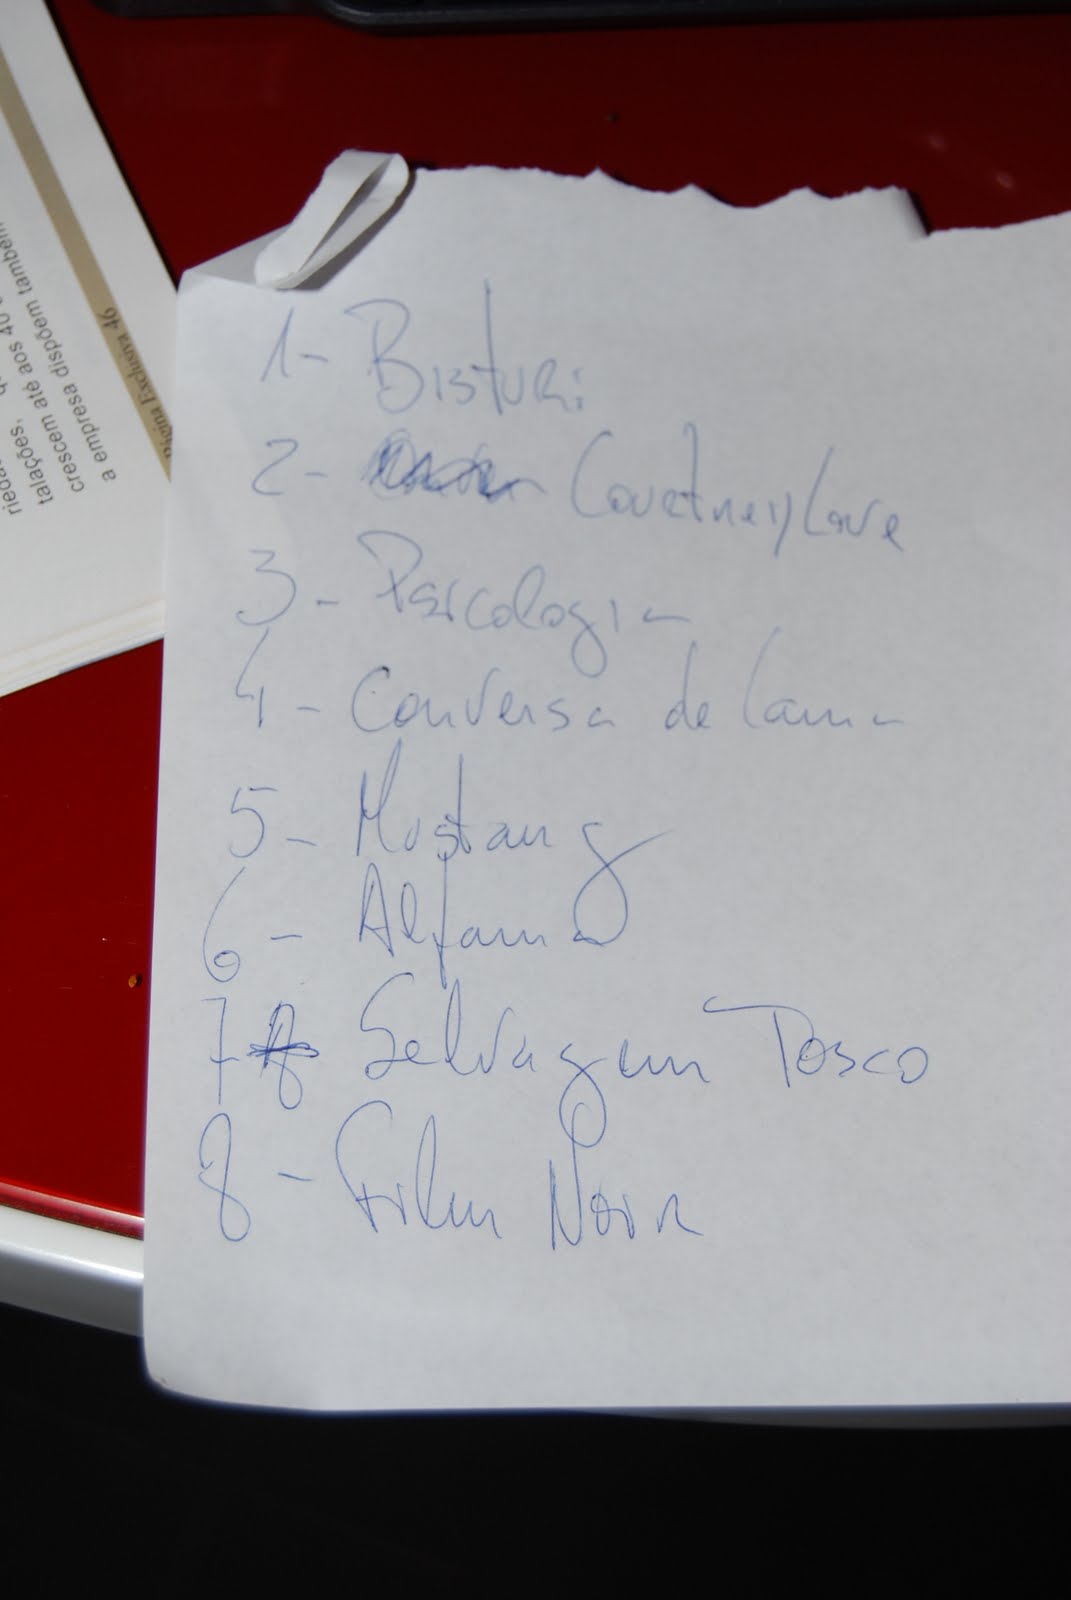 1- Bisturi
2- Courtney Love
3- Psicologia
4- Conversa de Cama
5- Mustang
6- Alfama
7 Selvagem Tosco
8- Film Noir
talações,
crescem até aos 40
a empresa dispõem também
Página Exclusiva 46